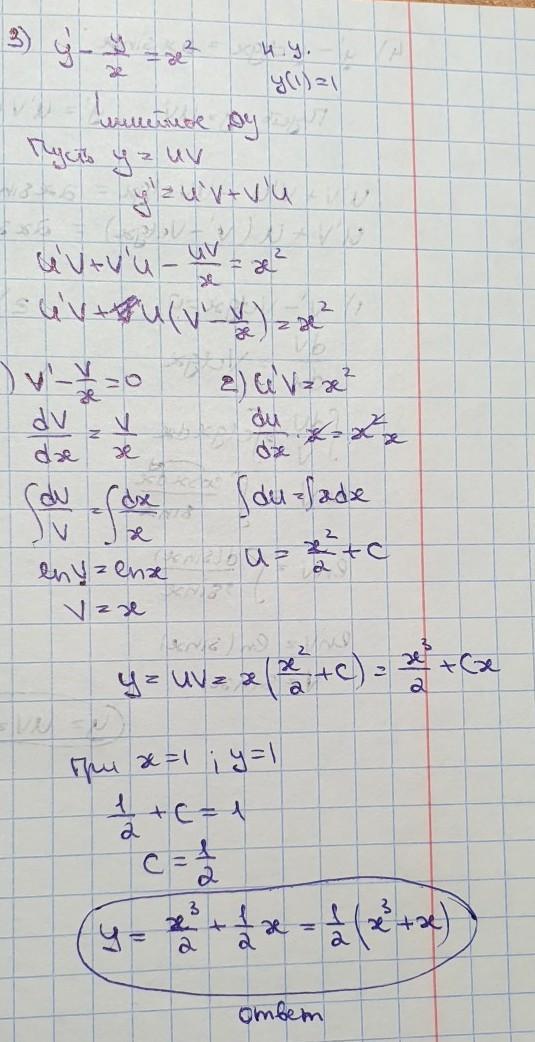 3) y' - y/x = x² н.у.
y(1)=1
линейное ДУ
Пусть y = uv
y' = u'v + v'u
u'v + v'u - uv/x = x²
u'v + u(v' - v/x) = x²
) v' - v/x = 0 2) u'v = x²
dv/dx = v/x du/dx · x = x² x
∫ dv/v = ∫ dx/x ∫ du = ∫ xdx
lnv = lnx u = x²/2 + c
v = x
y = uv = x(x²/2 + c) = x³/2 + Cx
При x=1 ; y=1
1/2 + c = 1
c = 1/2
y = x³/2 + 1/2 x = 1/2 (x³ + x)
ответ